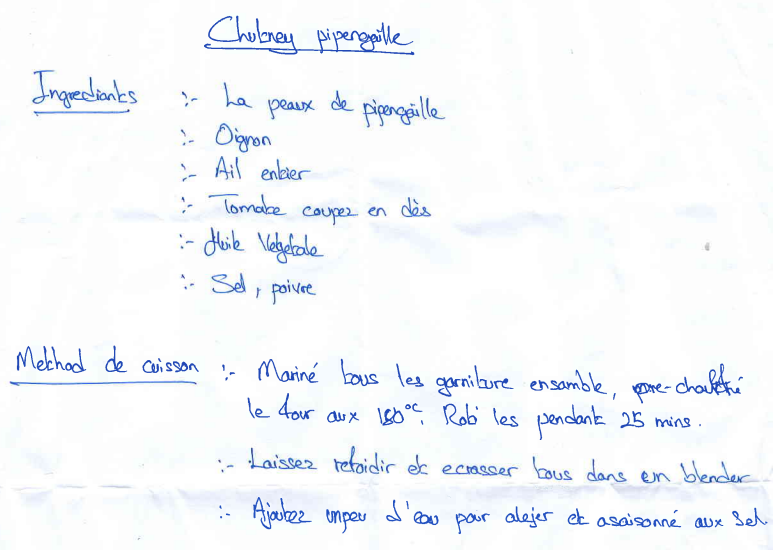 Chutney pipengaille
Ingrediants :- La peaux de pipengaille
:- Oignon
:- Ail entier
:- Tomate coupez en dès
:- Huile Vegetale
:- Sel, poivre
Methad de cuisson :- Mariné tous les garniture ensamble, pre-chauffé
le four aux 180°C. Roti les pendant 25 mins.
:- Laissez refoidir et ecrasser tous dans en blender
:- Ajoutez unpeu d'eau pour alejer et asaisonné aux Sel.